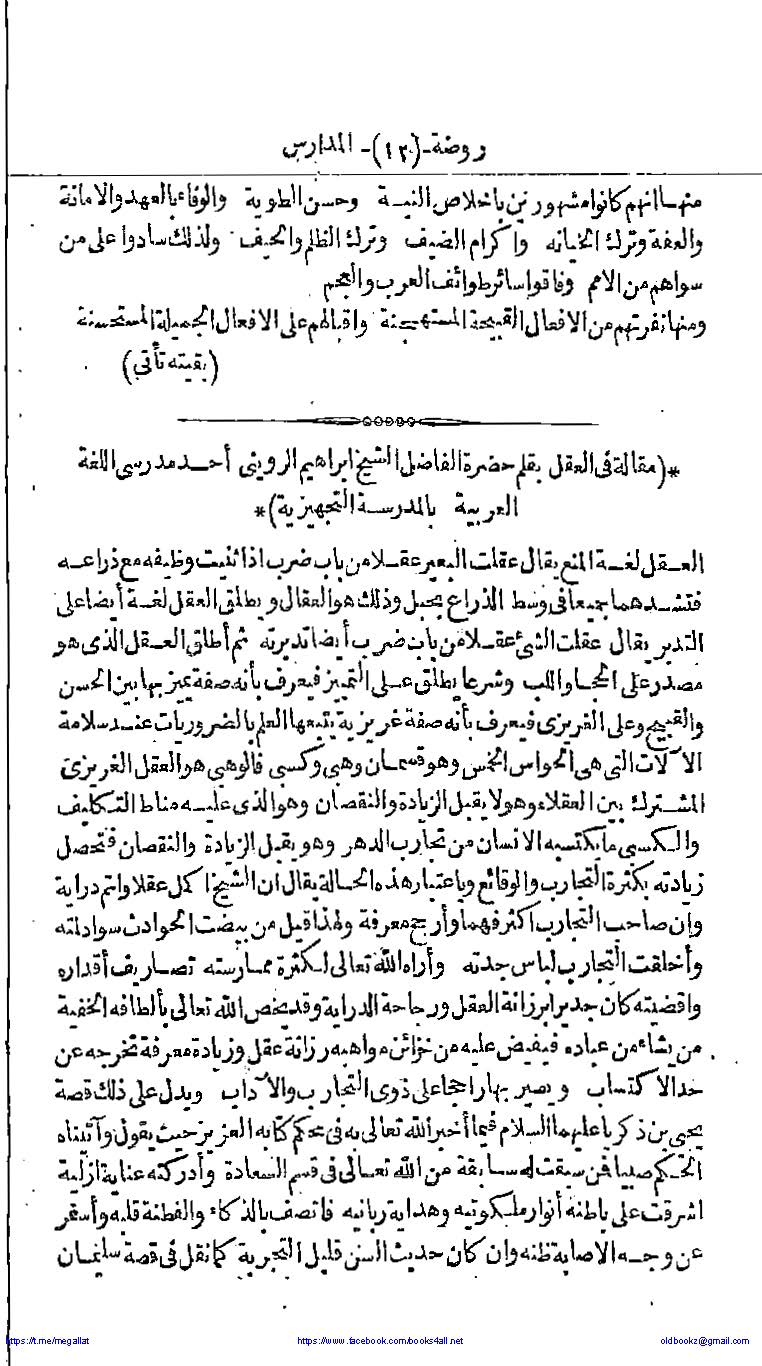 روضة-(١٢)-المدارس
منها انهم كانوا مشهورين باخلاص النية وحسن الطوية والوفاء بالعهد والامانة
والعفة وترك الخيانه واكرام الضيف وترك الظلم والحيف ولذلك سادوا على من
سواهم من الامم وفاقوا سائر طوائف العرب والعجم
ومنها نفرتهم من الافعال القبيحة المستهجنة واقبالهم على الافعال الجميلة المستحسنة
(بقيته تأتى)
*(مقالة فى العقل بقلم حضرة الفاضل الشيخ ابراهيم الروينى أحد مدرسى اللغة
العربية بالمدرسة التجهيزية)*
العقل لغة المنع يقال عقلت البعير عقلا من باب ضرب اذا ثنيت وظيفه مع ذراعه
فتشدهما جميعا فى وسط الذراع بحبل وذلك هو العقال ويطلق العقل لغة أيضا على
التدبر يقال عقلت الشئ عقلا من باب ضرب أيضا تدبرته ثم أطلق العقل الذى هو
مصدر على الحجا واللب وشرعا يطلق على التمييز فيعرف بأنه صفة يميز بها بين الحسن
والقبيح وعلى الغريزى فيعرف بأنه صفة غريزية يتبعها العلم بالضروريات عند سلامة
الآلات التى هى الحواس الخمس وهو قسمان وهبى وكسبى فالوهبى هو العقل الغريزى
المشترك بين العقلاء وهو لا يقبل الزيادة والنقصان وهو الذى عليه مناط التكليف
والكسبى ما يكتسبه الانسان من تجارب الدهر وهو يقبل الزيادة والنقصان فتحصل
زيادته بكثرة التجارب والوقائع وباعتبار هذه الحالة يقال ان الشيخ اكمل عقلا واتم دراية
وان صاحب التجارب اكثر فهما وأرجح معرفة ولهذا قيل من بيضت الحوادث سواد لمته
وأخلقت التجارب لباس جدته وأراه الله تعالى لكثرة ممارسته تصاريف أقداره
واقضيته كان جديرا برزانة العقل ورجاحة الدراية وقد يخص الله تعالى بألطافه الخفية
من يشاء من عباده فيفيض عليه من خزائن مواهبه رزانة عقل وزيادة معرفة تخرجه عن
حد الاكتساب ويصير بها راجحا على ذوى التجارب والآداب ويدل على ذلك قصة
يحيى بن ذكريا عليهما السلام فيما أخبر الله تعالى به فى محكم كتابه العزيز حيث يقول وآتيناه
الحكم صبيا فمن سبقت له سابقة من الله تعالى فى قسم السعادة وأدركته عناية ازلية
اشرقت على باطنه أنوار ملكوتيه وهداية ربانيه فاتصف بالذكاء والفطنة قلبه وأسفر
عن وجه الاصابة ظنه وان كان حديث السن قليل التجربة كما نقل فى قصة سليمان
https://t.me/megallat
https://www.facebook.com/books4all.net
oldbookz@gmail.com